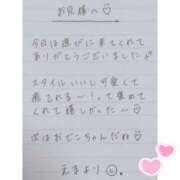 お兄様へ♡
今日は遊びに来てくれて
ありがとうございました
スタイルいいし可愛くて
癒されるー！って褒めて
くれて嬉しかった〜♡
次はおでこちゃんだね♡
えまより